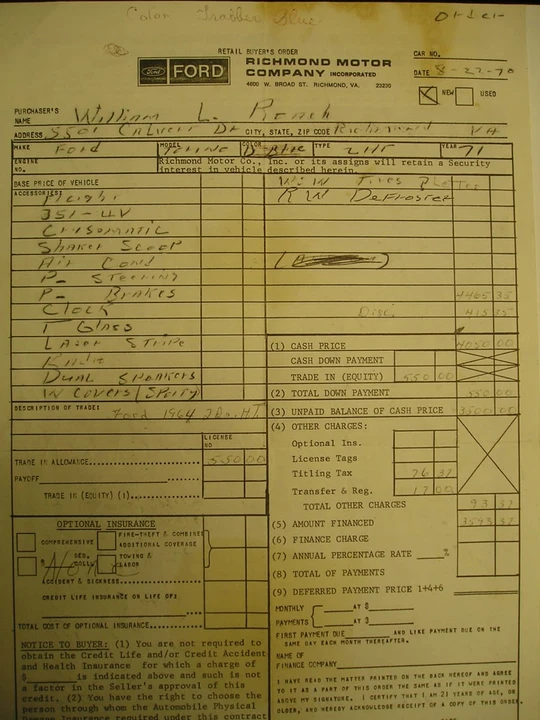 Color Grabber Blue
Order
RETAIL BUYER'S ORDER
Ford FORD
RICHMOND MOTOR
COMPANY INCORPORATED
4600 W. BROAD ST. RICHMOND, VA. 23230
CAR NO.
DATE 8-22-70
NEW USED
PURCHASER'S NAME William L.
ADDRESS 5501 Dr CITY, STATE, ZIP CODE Richmond VA
MAKE Ford MODEL Torino COLOR D-Blue TYPE 2HT YEAR 71
ENGINE NO.
Richmond Motor Co., Inc. or its assigns will retain a Security interest in vehicle described herein.
BASE PRICE OF VEHICLE
W.S.W Tires
ACCESSORIES:
Freight
R W Defroster
351-4V
Cruisomatic
Shaker Scoop
Air Cond
P- Steering
P- Brakes
4465 35
Clock
Disc. 415 35
T Glass
Laser Stripe
(1) CASH PRICE 4050 00
CASH DOWN PAYMENT
Radio
TRADE IN (EQUITY) 550 00
Dual Speakers
(2) TOTAL DOWN PAYMENT 550 00
W Covers (Sport)
(3) UNPAID BALANCE OF CASH PRICE 3500 00
DESCRIPTION OF TRADE: Ford 1964 2Dr. HT
(4) OTHER CHARGES:
Optional Ins.
LICENSE NO
License Tags
TRADE IN ALLOWANCE 550 00
Titling Tax 76 37
PAYOFF
Transfer & Reg. 17 00
TRADE IN (EQUITY) (1)
TOTAL OTHER CHARGES 93 37
(5) AMOUNT FINANCED 3593 37
OPTIONAL INSURANCE
(6) FINANCE CHARGE
COMPREHENSIVE
FIRE-THEFT & COMBINED ADDITIONAL COVERAGE
(7) ANNUAL PERCENTAGE RATE %
$ DED. COLL. TOWING & LABOR
None
(8) TOTAL OF PAYMENTS
ACCIDENT & SICKNESS
(9) DEFERRED PAYMENT PRICE 1+4+6
CREDIT LIFE INSURANCE ON LIFE OF:
MONTHLY AT $
PAYMENTS AT $
TOTAL COST OF OPTIONAL INSURANCE
FIRST PAYMENT DUE AND LIKE PAYMENT DUE ON THE
SAME DAY EACH MONTH THEREAFTER.
NAME OF
FINANCE COMPANY
NOTICE TO BUYER: (1) You are not required to
obtain the Credit Life and/or Credit Accident
and Health Insurance for which a charge of
$ is indicated above and such is not
a factor in the Seller's approval of this
credit. (2) You have the right to choose the
person through whom the Automobile Physical
Damage Insurance required under this contract
I HAVE READ THE MATTER PRINTED ON THE BACK HEREOF AND AGREE
TO IT AS A PART OF THIS ORDER THE SAME AS IF IT WERE PRINTED
ABOVE MY SIGNATURE. I CERTIFY THAT I AM 21 YEARS OF AGE, OR
OLDER, AND HEREBY ACKNOWLEDGE RECEIPT OF A COPY OF THIS ORDER.